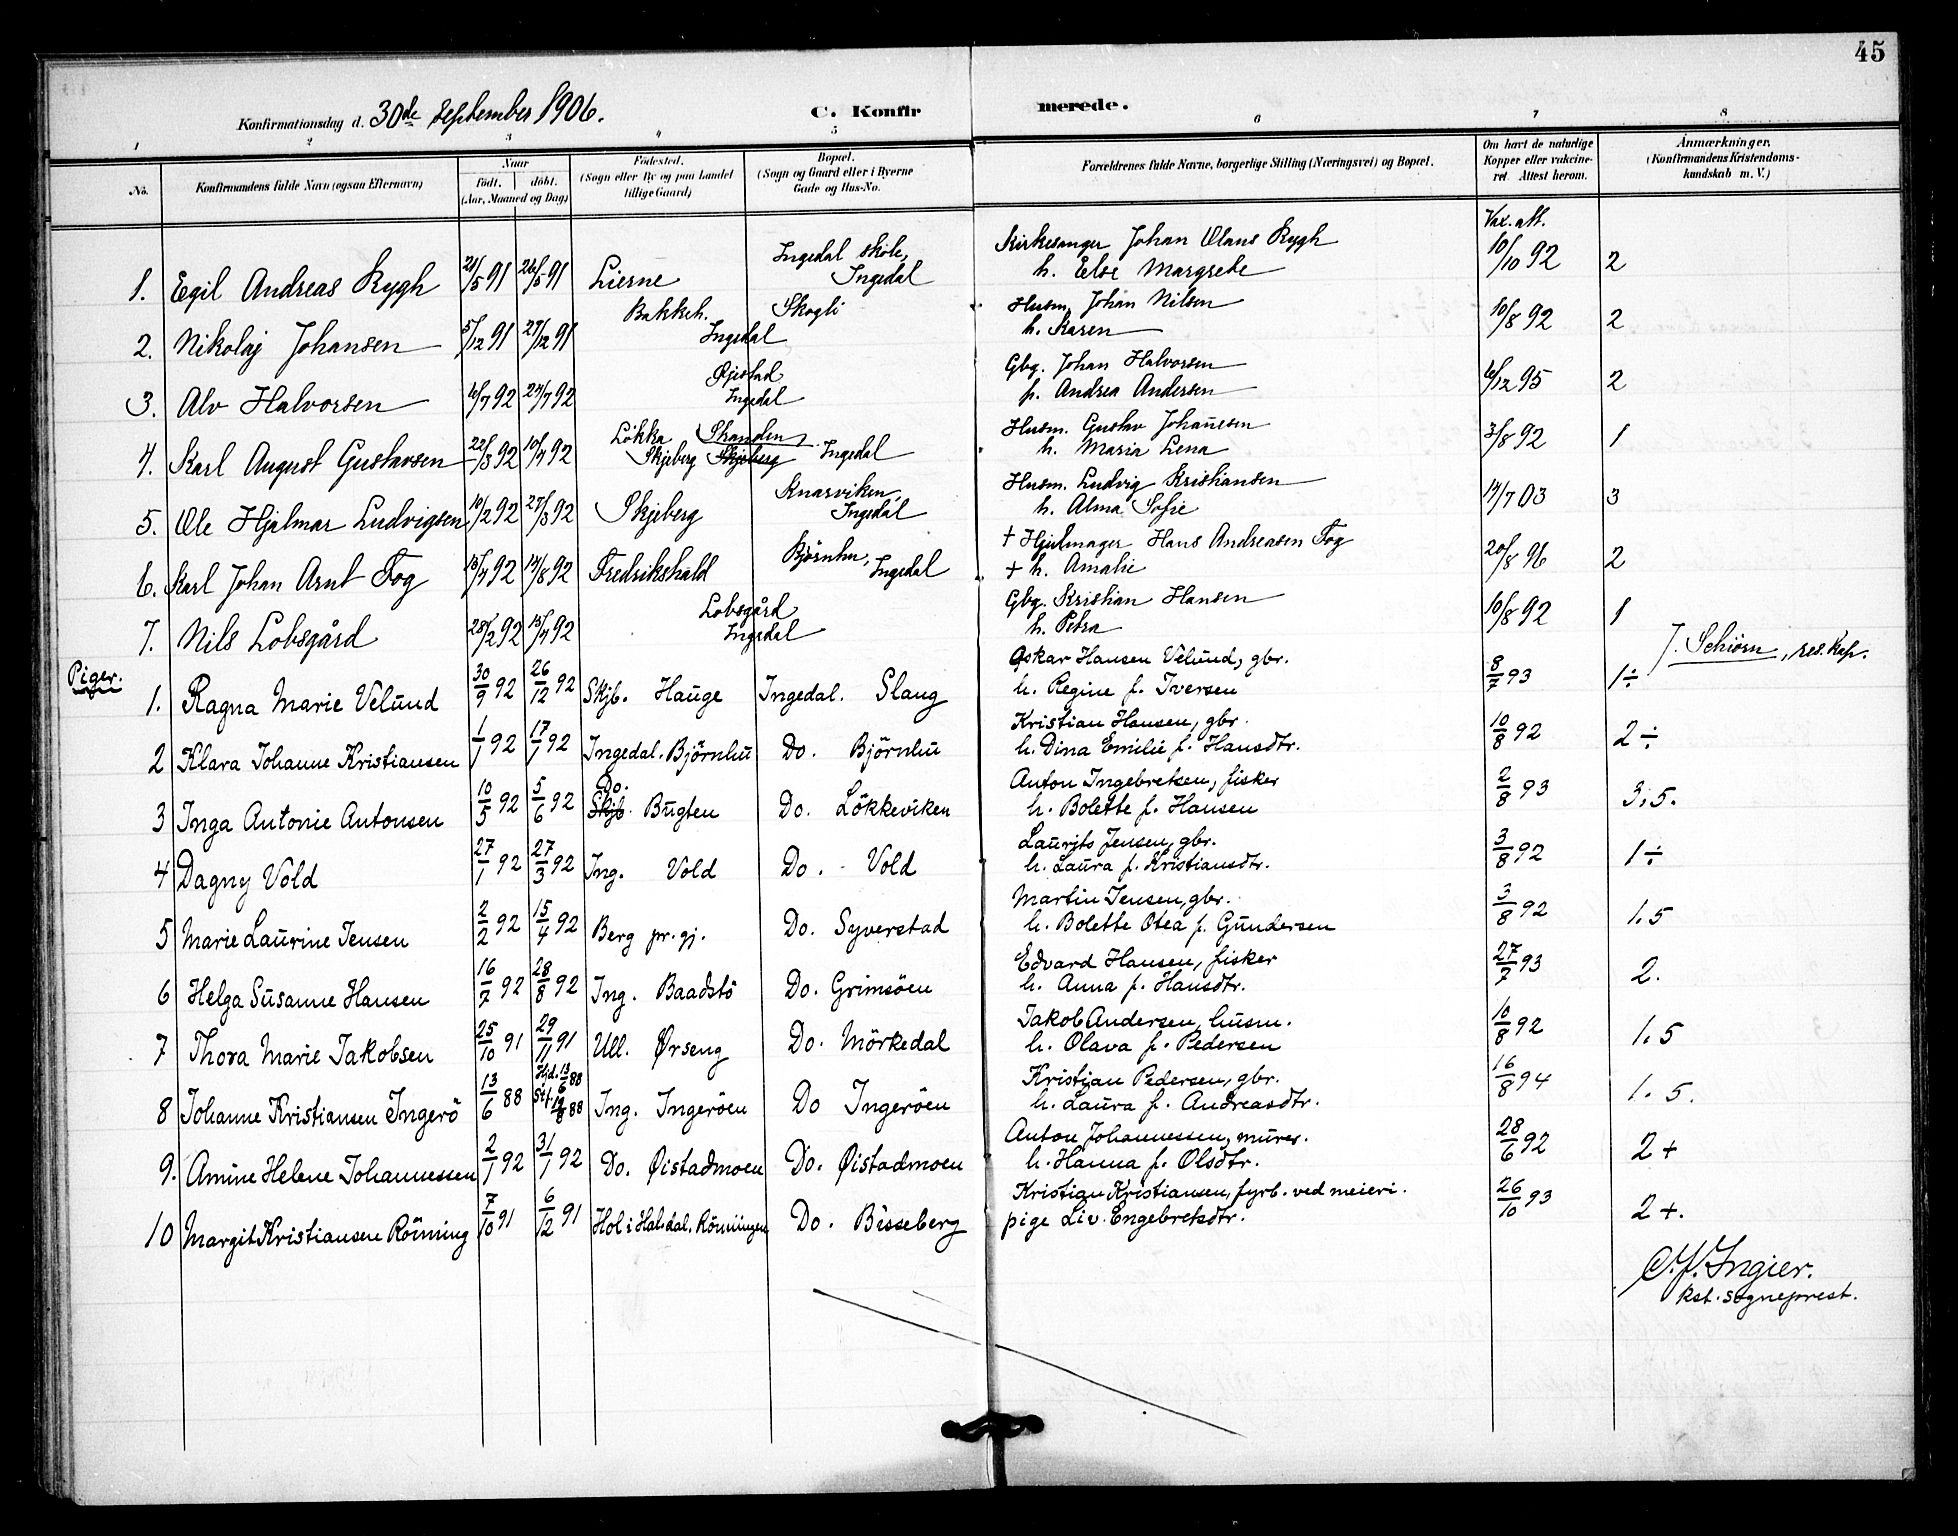 45
Konfirmationsdag d. 30de September 1906.
C. Konfirmerede.
1 2 3 4 5 6 7 8
No.
Konfirmandens fulde Navn (ogsaa Efternavn)
Naar
født. døbt.
(Aar, Maaned og Dag)
Fødested.
(Sogn eller By og paa Landet
tillige Gaard)
Bopæl.
(Sogn og Gaard eller i Byerne
Gade og Hus-No.
Forældrenes fulde Navne, borgerlige Stilling (Næringsvei) og Bopæl.
Om havt de naturlige
Kopper eller vakcine-
ret. Attest herom.
Anmærkninger.
(Konfirmandens Kristendoms-
kundskab m. V.)
Vax. att.
Ingedal skole, Kirkesanger Johan Olaus Rygh
1. Egil Andreas Rygh 21/5 91 26/5 91 Lierne Ingedal h. Else Margrete 10/10 92 2
Bakkeh. Skogli Husm. Johan Nilsen
2. Nikolaj Johansen 5/12 91 27/12 91 Ingedal h. Karen 10/8 92 2
Øjestad Gbg. Johan Halvorsen
3. Alv Halvorsen 6/7 92 24/7 92 Ingedal f. Andrea Andersen 6/12 95 2
Løkka Skanden, Husm. Gustav Johansen
4. Karl August Gustavsen 22/3 92 10/4 92 Skjeberg Skjeberg Ingedal h. Maria Lena 3/8 92 1
Knarviken, Husm. Ludvig Kristiansen
5. Ole Hjalmar Ludvigsen 10/2 92 27/3 92 Skjeberg Ingedal h. Alma Sofie 14/7 03 3
Bjørnhu, + Hjulmager Hans Andreasen Fog
6. Karl Johan Arnt Fog 15/4 92 14/8 92 Fredrikshald Ingedal + h. Amalie 20/8 96 2
Lobsgård Gbg. Kristian Hansen
7. Nils Lobsgård 28/2 92 15/4 92 Ingedal h. Petra 10/8 92 1
J. Schiørn, res. kap.
Piger.
Oskar Hansen Velund, gbr.
1. Ragna Marie Velund 30/9 92 26/12 92 Skjb. Hauge Ingedal. Slaug h. Regine f. Iversen 8/7 93 1÷
Kristian Hansen, gbr.
2 Klara Johanne Kristiansen 1/1 92 17/1 92 Ingedal. Björnhu Do. Björnhu h. Dina Emilie f. Hansdtr. 10/8 92 2÷
Do. Anton Ingebretsen, fisker
3 Inga Antonie Antonsen 10/5 92 5/6 92 Skjb. Bugten Do. Lökkeviken h. Bolette f. Hansen 2/8 93 3,5.
Laurits Jensen, gbr.
4 Dagny Vold 27/1 92 27/3 92 Ing. Vold Do. Vold h. Laura f. Kristiansdtr. 3/8 92 1÷
Martin Jensen, gbr.
5 Marie Laurine Jensen 2/2 92 15/4 92 Berg pr.gj. Do. Syverstad h. Bolette Otea f. Gundersen 3/8 92 1.5
Edvard Hansen, fisker
6 Helga Susanne Hansen 16/7 92 28/8 92 Ing. Baadstö Do. Grimsöen h. Anna f. Hansdtr. 27/7 93 2.
Jakob Andersen, husm.
7 Thora Marie Jakobsen 25/10 91 29/11 91 Ull. Ørseng Do. Mörkedal h. Olava f. Pedersen 10/8 92 1.5
Hjd. 13/6 88 Kristian Pedersen, gbr.
8 Johanne Kristiansen Ingerö 13/6 88 st. 19/8 88 Ing. Ingeröen Do Ingeröen h. Laura f. Andreasdtr. 16/8 94 1.5.
Anton Johannessen, murer.
9. Amine Helene Johannessen 2/1 92 31/1 92 Do. Øistadmoen Do. Øistadmoen h. Hanna f. Olsdtr. 28/6 92 2+
Kristian Kristiansen, fyrb. ved meieri.
10 Margit Kristiansen Rönning 7/10 91 6/12 91 Hol i Hal.dal. Rönningen Do. Bisseberg pige Liv. Engebretsdtr. 26/10 93 2+.
C. F. Ingier.
kst. sogneprest.